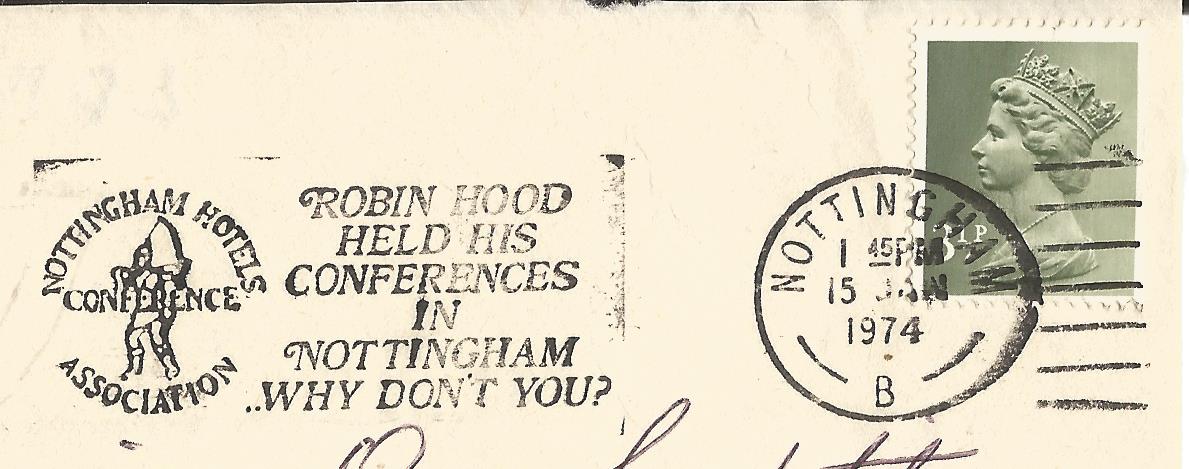 NOTTINGHAM HOTELS
CONFERENCE
ASSOCIATION
ROBIN HOOD
HELD HIS
CONFERENCES
IN
NOTTINGHAM
..WHY DON'T YOU?
NOTTINGHAM
1 45PM
15 JAN
1974
B
3½P